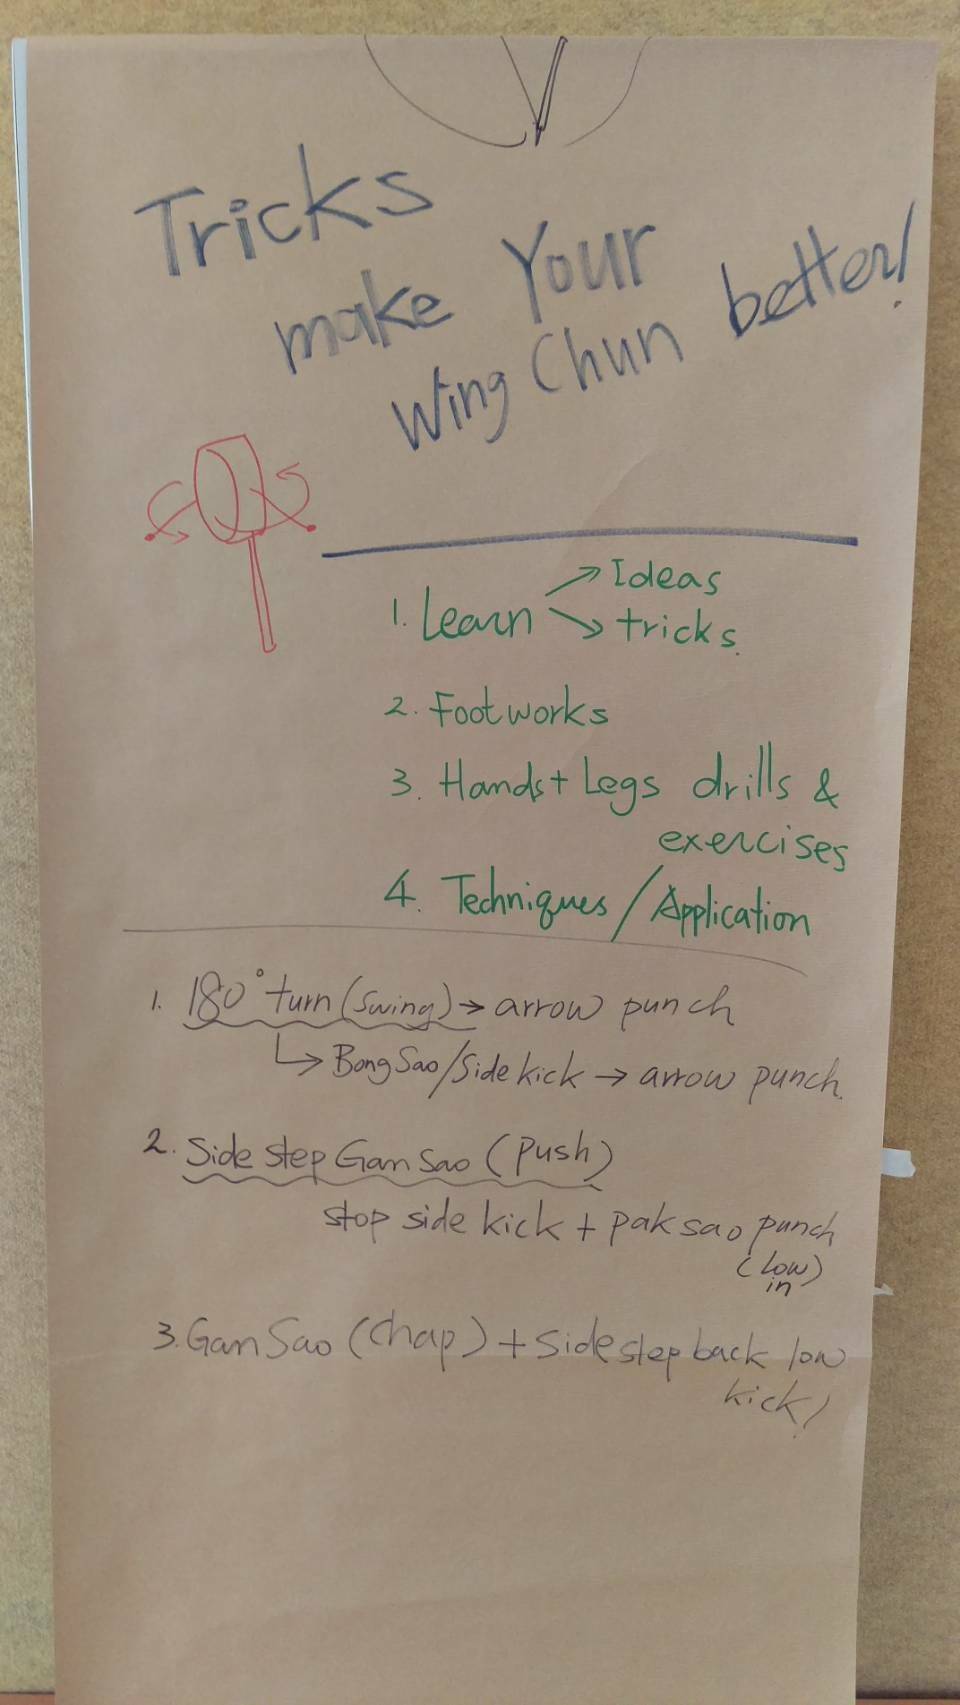 Tricks
make Your
Wing Chun better!
1. Learn → Ideas
→ tricks.
2. Footworks
3. Hands + Legs drills &
exercises
4. Techniques / Application
1. 180° turn (swing) → arrow punch
↳ Bong Sao / Side kick → arrow punch.
2. Side step Gan Sao (push)
stop side kick + pak sao punch
(low)
in
3. Gan Sao (Chap) + Side step back low
kick!